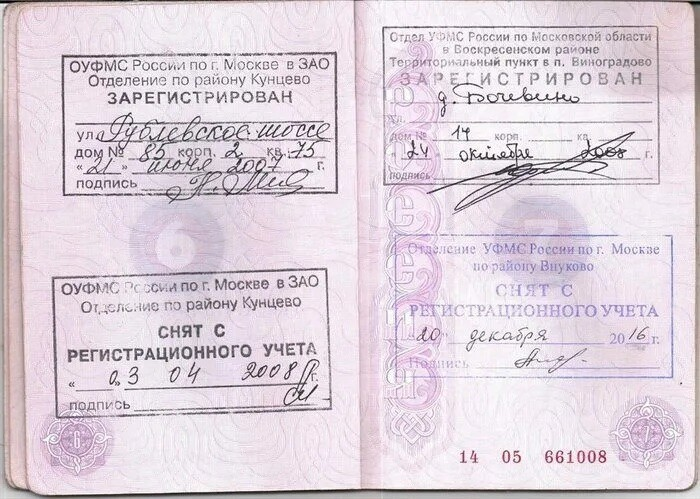 ОУФМС России по г. Москве в ЗАО
Отделение по району Кунцево
ЗАРЕГИСТРИРОВАН
ул. Рублевское шоссе
дом № 85 корп. 2 кв. 75
"21" июня 2007 г.
подпись
6
ОУФМС России по г. Москве в ЗАО
Отделение по району Кунцево
СНЯТ С
РЕГИСТРАЦИОННОГО УЧЕТА
"03 04 2008 г.
подпись
6
Отдел УФМС России по Московской области
в Воскресенском районе
Территориальный пункт в п. Виноградово
ЗАРЕГИСТРИРОВАН
д. Бочевино
ул.
дом № 14 корп. кв.
"24" октября 2008
подпись
7
Отделение УФМС России по г. Москве
по району Внуково
СНЯТ С
РЕГИСТРАЦИОННОГО УЧЕТА
"20" декабря 2016 г.
Подпись
7
14 05 661008